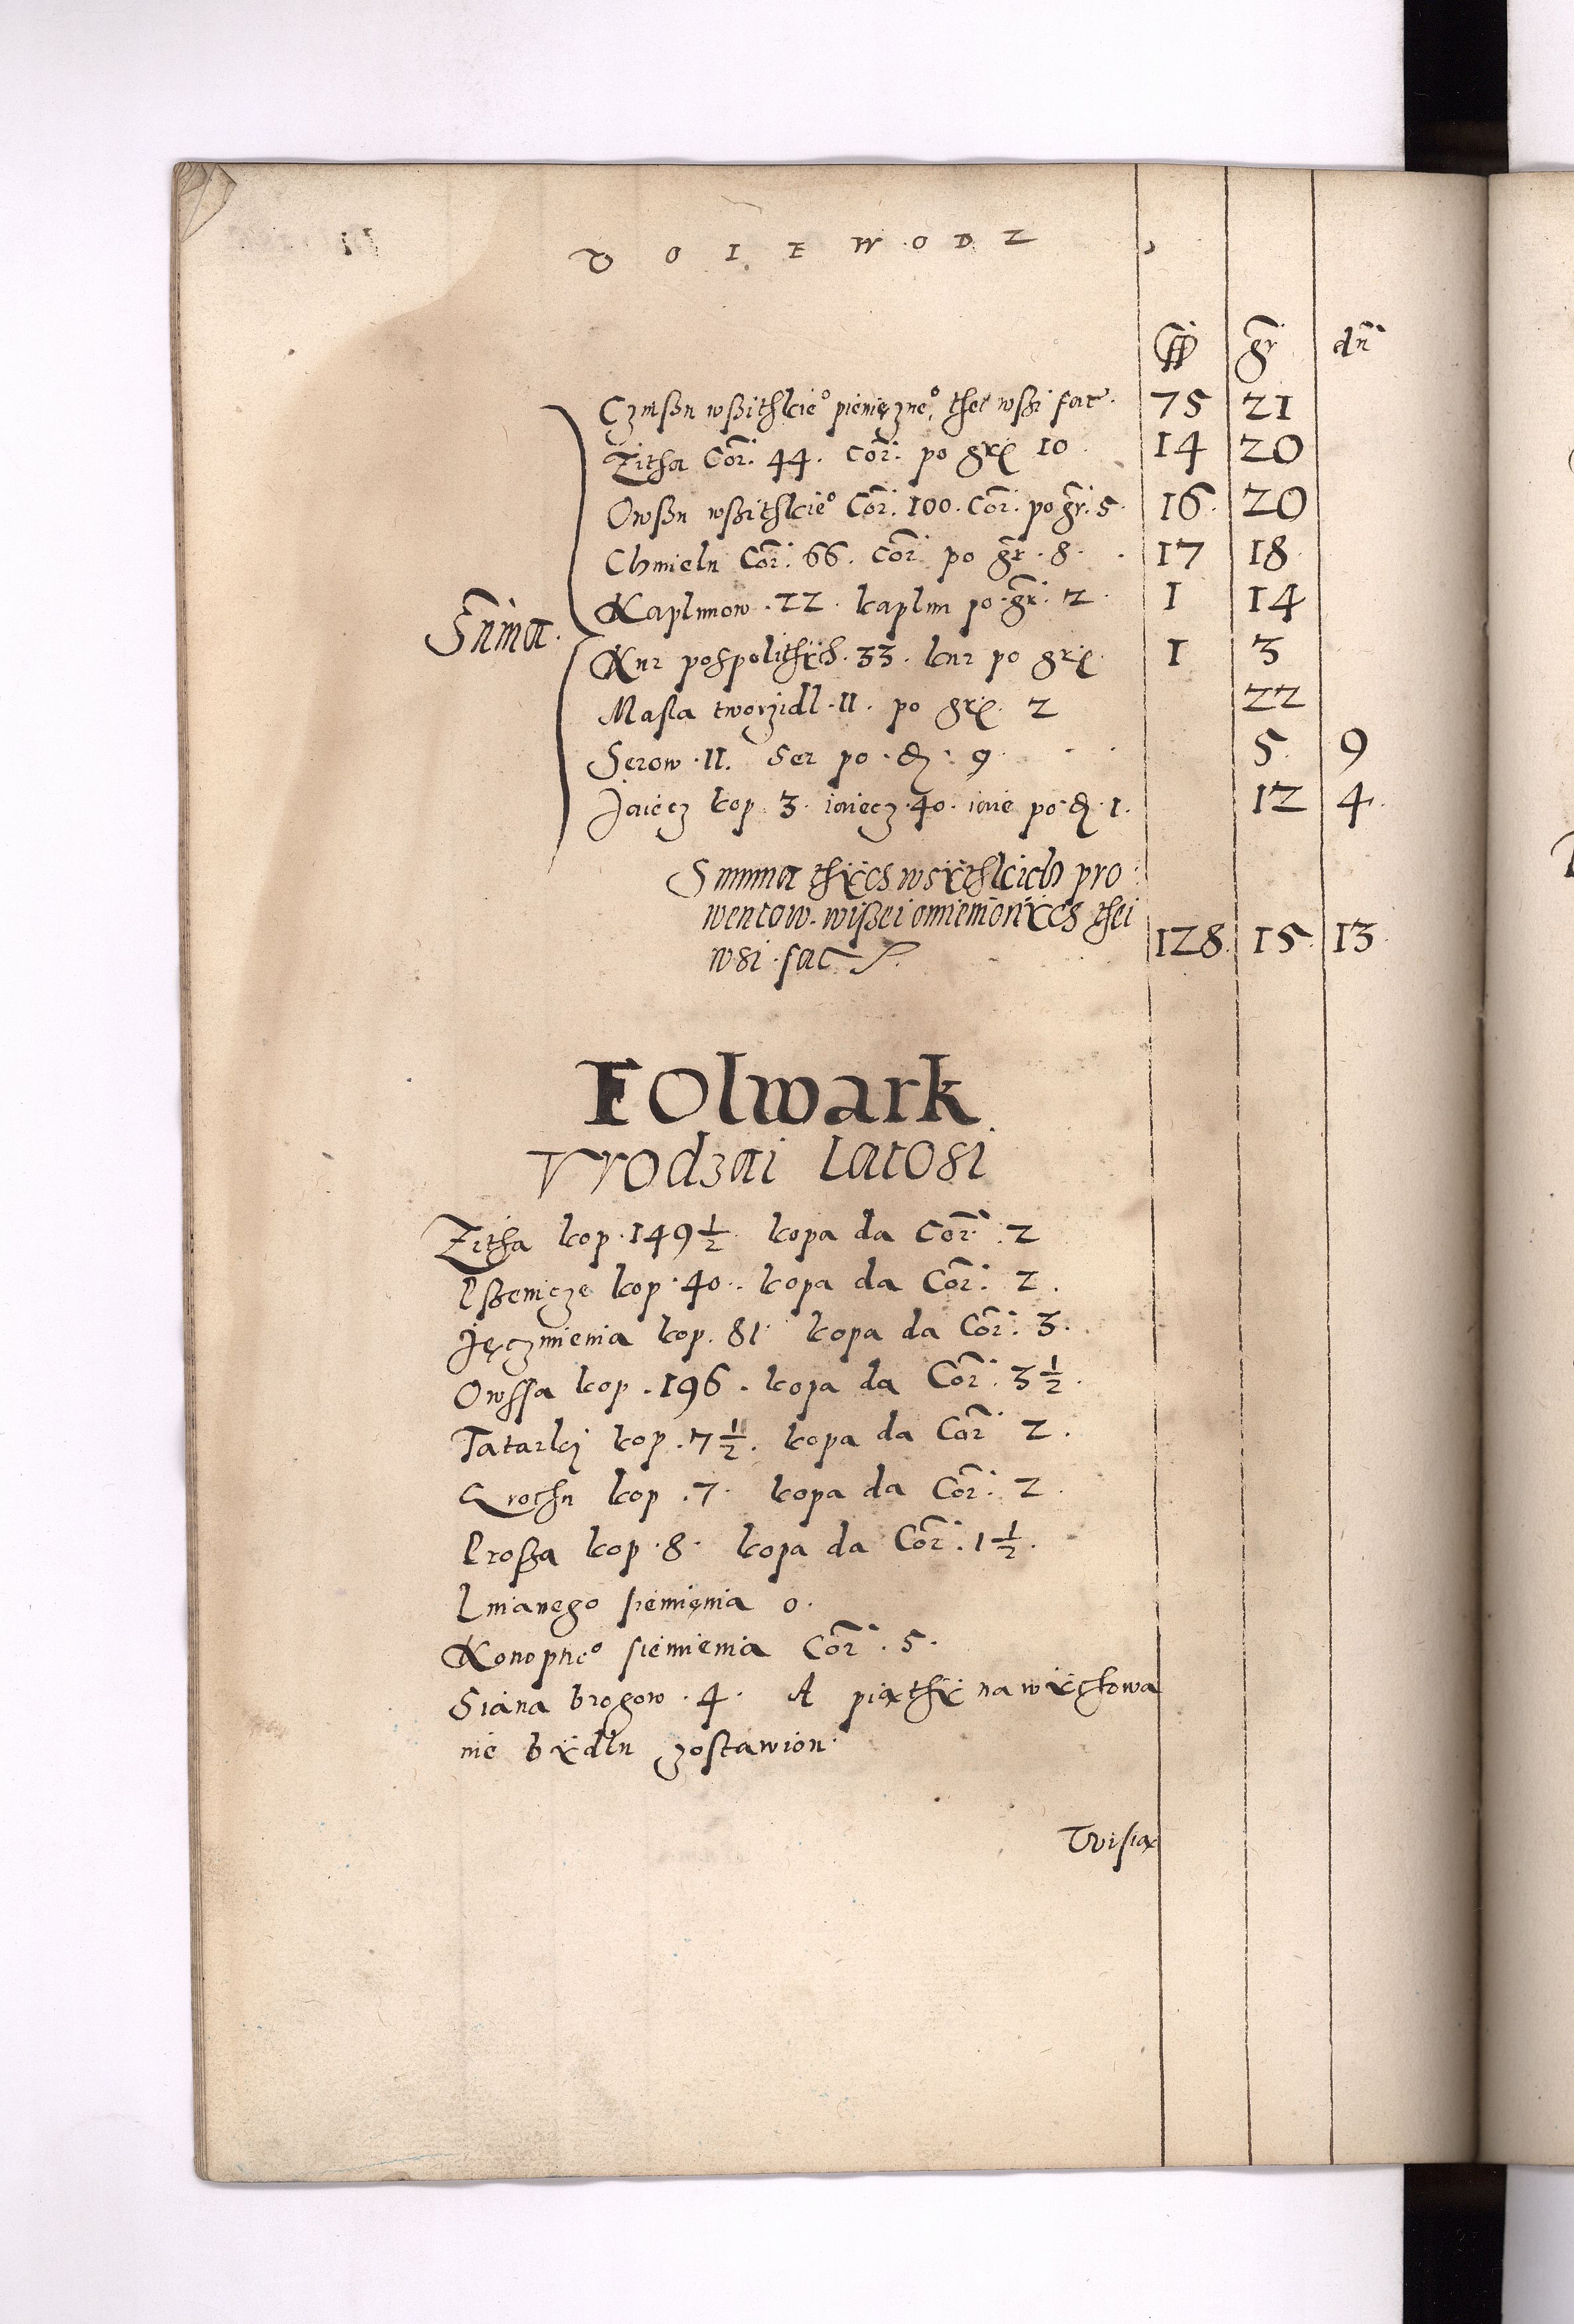 W O I E W O D Z
ff gr dn̄
Czinssu wssithkie° pieniężne°, thei wssi fac. 75 21
Zitha Cor. 44. Cor. po gr. 10 14 20
Owssu wssithkie° Cor. 100. Cor. po gr. 5. 16. 20
Chmielu Cor. 66. Cor. po gr. 8. 17 18
Kaplunow. 22. kaplun po gr. 2. 1 14
Sum̄a.
Kur pospolithÿch. 33. kur po gr. 1 3
Masla tworzidl. 11. po gr. 2 22
Serow. 11. Ser po d. 9 5. 9
Jaiecz kop 3. iaiecz. 40. iaie po d. 1. 12 4.
Summa thÿch wsÿthkich pro:
wentow. wissei omiemonÿch thei
wsi. fac. 128. 15. 13.
Folwark
Vrodzai Latosi
Zitha kop. 149 1/2 kopa da Cor. 2
Pssenicze kop. 40. kopa da Cor. 2.
Jęczmienia kop. 81 kopa da Cor. 3.
Owssa kop. 196. kopa da Cor. 3 1/2.
Tatarki kop. 7 1/2. kopa da Cor 2.
Grochu kop. 7. kopa da Cor. 2.
Prossa kop. 8. kopa da Cor. 1 1/2.
Lnianego siemięnia 0.
Konopne° siemienia Cor. 5.
Siana brogow. 4. A piąthÿ na wÿchowa
nie bÿdłu zostawion.
Trisią